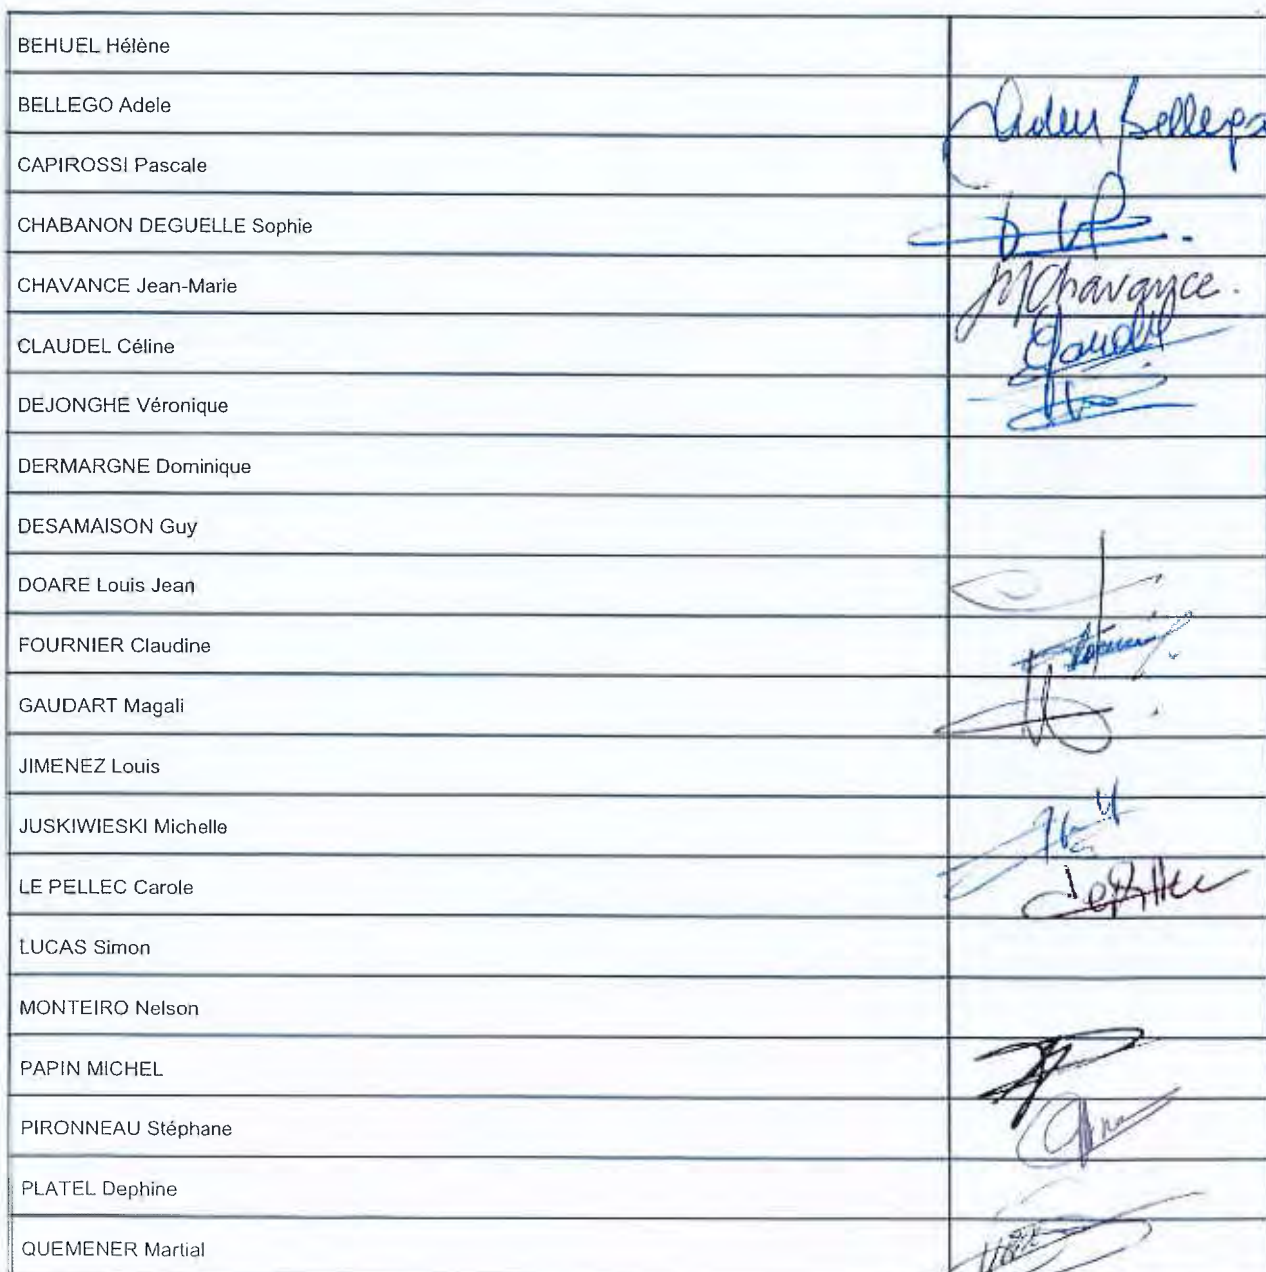 BEHUEL Hélène
BELLEGO Adele
CAPIROSSI Pascale
CHABANON DEGUELLE Sophie
CHAVANCE Jean-Marie
JMChavance.
CLAUDEL Céline
DEJONGHE Véronique
DERMARGNE Dominique
DESAMAISON Guy
DOARE Louis Jean
FOURNIER Claudine
GAUDART Magali
JIMENEZ Louis
JUSKIWIESKI Michelle
LE PELLEC Carole
LUCAS Simon
MONTEIRO Nelson
PAPIN MICHEL
PIRONNEAU Stéphane
PLATEL Dephine
QUEMENER Martial